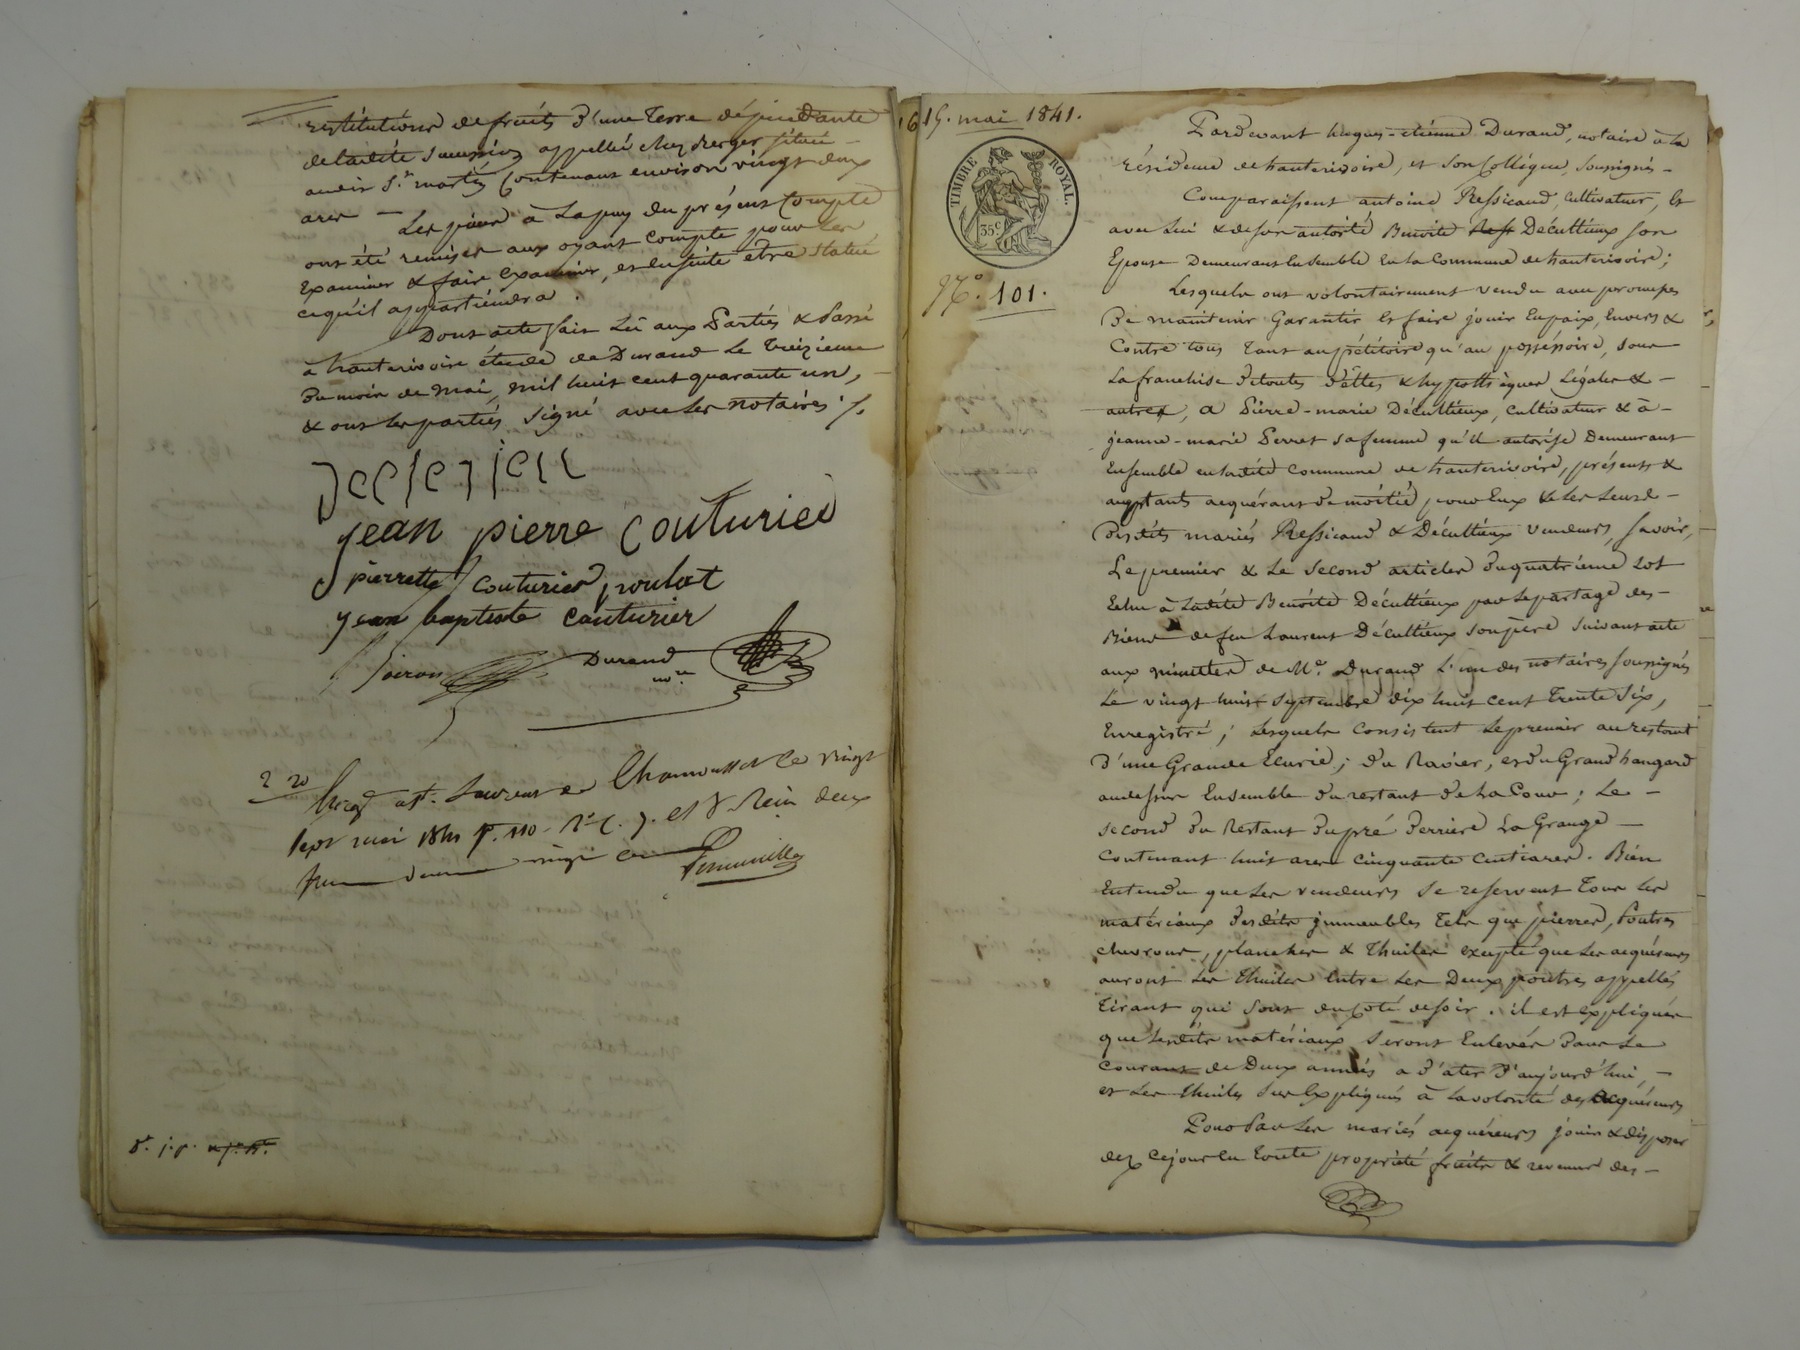 restitutions de fruits d'une terre dépendante
de ladite succession appellée chez Berger située
audit St. martin Contenant environ vingt deux
ares — Les pièces à Lapuy du présent Compte
ont été remises aux oyant compte pour Les
Examiner & faire Examiner, et Ensuite être statué
cequ'il appartiendra.
Dont acte fait Lu aux Parties & Passé
à hauterivoire étude de Durand Le treizieme
Du mois de Mai, mil huit cent quarante un,
& ont les parties signé avec les notaires ./.
jean pierre Couturier
pierrette couturier poulat
jean baptiste couturier
Durand
nore
2 20
St. Laurent de Chamousset le vingt
sept mai 1841 f. 110
deux
vingt
16 15. mai 1841.
TIMBRE ROYAL.
35c
No. 101.
Pardevant hugues-etienne Durand, notaire à la
résidence de hauterivoire, et son Collègue, soussignés -
Comparaissent antoine Ressicaud, cultivateur, Et
avec Lui & de son autorité Benoite Décultieux son
Epouse Demeurant Ensemble En la Commune de hauterivoire;
Lesquels ont volontairement vendu avec promesses
De maintenir Garantir Et faire jouir En paix, Envers &
Contre tous tant au pétitoire qu'au possessoire, sous
La franchise de toutes dettes & hypothèques Légales & -
autres, a Pierre-marie Décultieux, cultivateur & à -
jeanne-marie Perret sa femme qu'il autorise Demeurant
Ensemble en ladite Commune de hauterivoire, présents &
acceptants acquérans de moitié pour Eux & les Leurs -
Desdits mariés Ressicaud & Décultieux vendeurs, savoir,
Le premier & Le second articles du quatrième Lot
Echu à Ladite Benoite Décultieux par Le partage des -
Biens de feu Laurent Décultieux son père suivant acte
aux minutes de Me. Durand L'un des notaires soussignés
Le vingt huit septembre dix huit cent trente six,
Enregistré; Lesquels Consistent Le premier au restant
d'une Grande Ecurie; du Ravier, et du Grand hangard
au dessus Ensemble du restant de La Cour; Le -
second du Restant du pré derrière La Grange -
Contenant huit ares cinquante centiares. Bien
Entendu que les vendeurs se reservent tous les
matériaux desdits immeubles tels que pierres, Poutres
chevrons, plancher & thuiles excepté que les acquéreurs
auront Les thuiles Entre Les Deux poutres appellés
tirant qui sont du coté de soir. il est Expliquer
que Lesdits matériaux seront Enlevés dans Le
courant de Deux années a d'ater d'aujourd'hui, -
et Les thuiles sus Expliqués à la volonté des acquéreurs
Pour Par Les mariés acquéreurs jouir & disposer
dez cejour En toute propriété fruits & revenus des -
Dt. j.p.